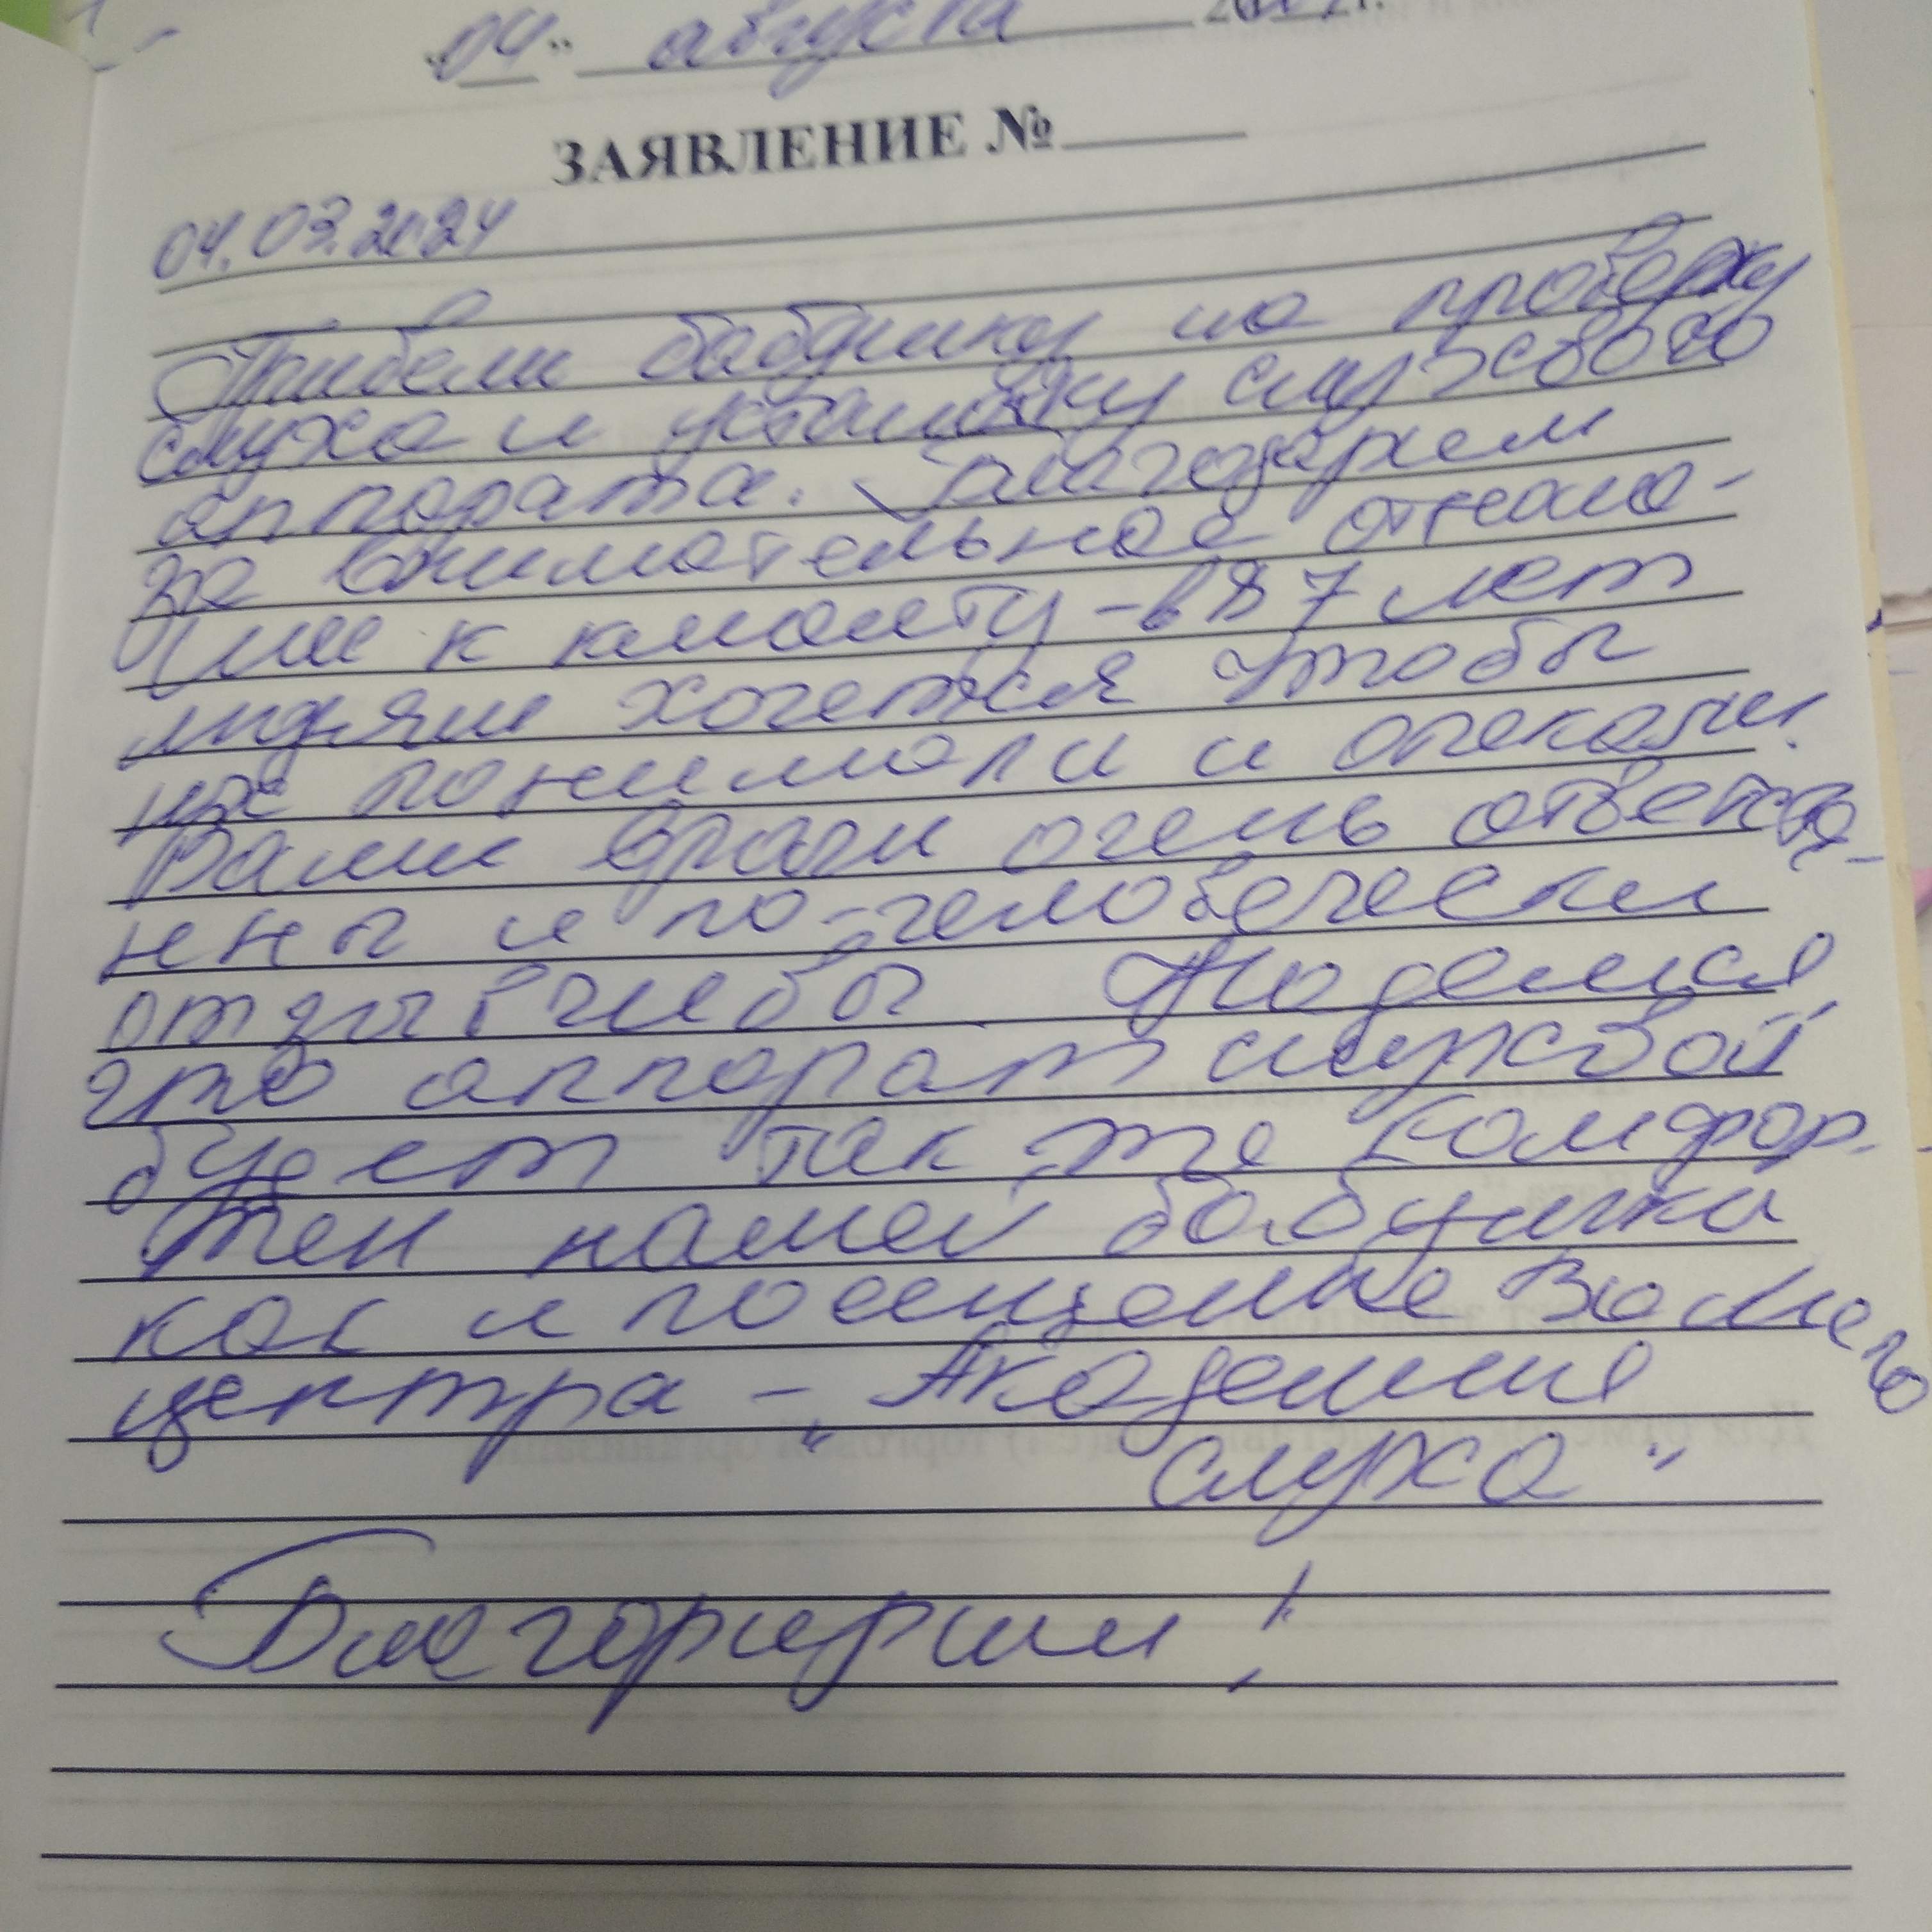 "04" августа
ЗАЯВЛЕНИЕ №
04.03.2024
Привели бабушку на проверку
слуха и установку слухового
аппарата. Благодарим
за внимательное отноше-
ние к клиенту - в 87 лет
людям хочется чтобы
их понимали и опекали.
Ваши врачи очень ответстве-
нны и по-человечески
отзывчивы. Надеемся,
что аппарат слуховой
будет так же комфор-
тен нашей бабушке
как и посещение Вашего
центра - "Академия
слуха"
Благодарим!